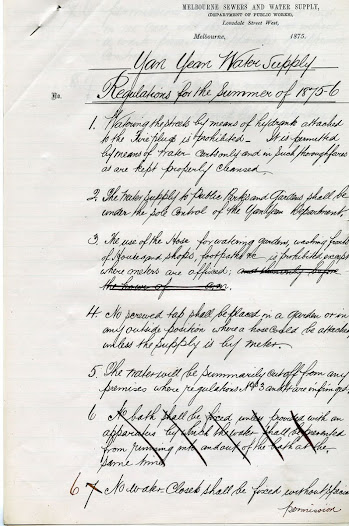 MELBOURNE SEWERS AND WATER SUPPLY,
(DEPARTMENT OF PUBLIC WORKS),
Lonsdale Street West,
Melbourne, 1875.
Yan Yean Water Supply
No.
Regulations for the Summer of 1875-6
1. Watering the streets by means of hydrants attached
to the Fire plugs is prohibited. It is permitted
by means of water Carts only and in such thoroughfares
as are kept properly cleansed.
2. The water supply to Public Parks and Gardens shall be
under the sole control of the Yan Yean Department.
3. The use of the Hose for watering gardens, washing fronts
of Houses and shops, footpaths &c is prohibited except
where meters are affixed; and then only before
the hour of a.m.
4. No screwed tap shall be placed in a Garden or in
any outside position where a hose could be attached
unless the supply is by meter.
5. The water will be summarily cut off from any
premises where regulations No 3 and 4 are infringed.
6 No bath shall be fixed unless provided with an
apparatus by which the water shall be prevented
from running into and out of the bath at the
same time
6 7 No Water Closet shall be fixed without special
permission